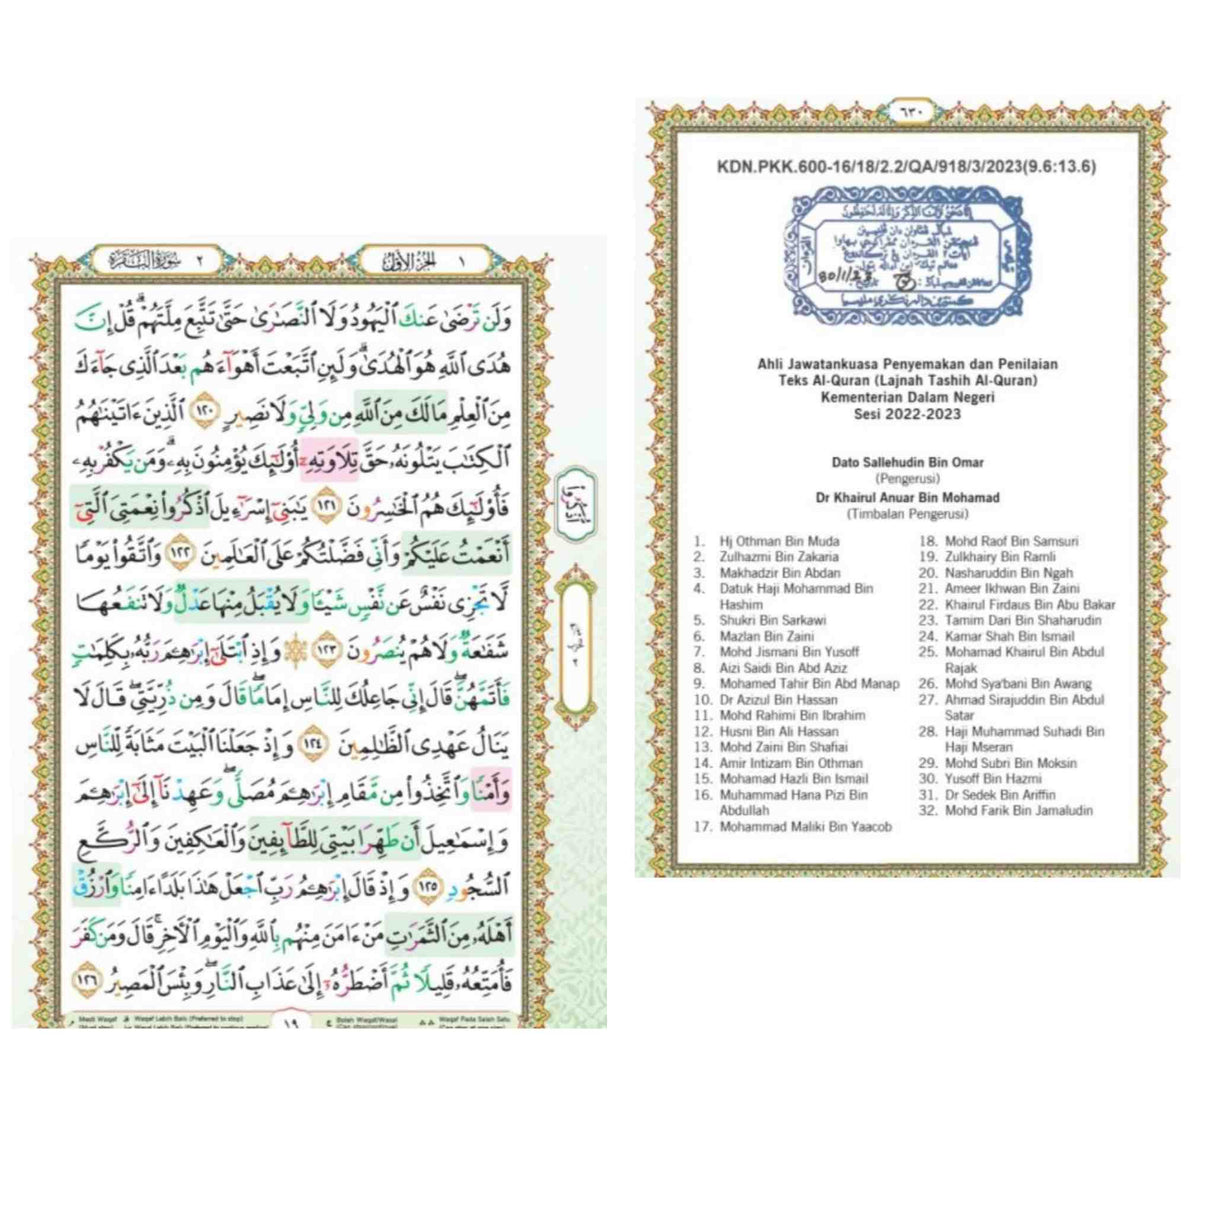 ٢ سُورَةُ البَقَرَة
الجُزءُ الأوّل ١
وَلَن تَرۡضَىٰ عَنكَ ٱلۡيَهُودُ وَلَا ٱلنَّصَٰرَىٰ حَتَّىٰ تَتَّبِعَ مِلَّتَهُمۡۗ قُلۡ إِنَّ
هُدَى ٱللَّهِ هُوَ ٱلۡهُدَىٰۗ وَلَئِنِ ٱتَّبَعۡتَ أَهۡوَآءَهُم بَعۡدَ ٱلَّذِي جَآءَكَ
مِنَ ٱلۡعِلۡمِ مَا لَكَ مِنَ ٱللَّهِ مِن وَلِيّٖ وَلَا نَصِيرٍ ١٢٠ ٱلَّذِينَ ءَاتَيۡنَٰهُمُ
ٱلۡكِتَٰبَ يَتۡلُونَهُۥ حَقَّ تِلَاوَتِهِۦٓ أُوْلَٰٓئِكَ يُؤۡمِنُونَ بِهِۦۗ وَمَن يَكۡفُرۡ بِهِۦ
فَأُوْلَٰٓئِكَ هُمُ ٱلۡخَٰسِرُونَ ١٢١ يَٰبَنِيٓ إِسۡرَٰٓءِيلَ ٱذۡكُرُواْ نِعۡمَتِيَ ٱلَّتِيٓ
أَنۡعَمۡتُ عَلَيۡكُمۡ وَأَنِّي فَضَّلۡتُكُمۡ عَلَى ٱلۡعَٰلَمِينَ ١٢٢ وَٱتَّقُواْ يَوۡمٗا
لَّا تَجۡزِي نَفۡسٌ عَن نَّفۡسٖ شَيۡـٔٗا وَلَا يُقۡبَلُ مِنۡهَا عَدۡلٞ وَلَا تَنفَعُهَا
شَفَٰعَةٞ وَلَا هُمۡ يُنصَرُونَ ١٢٣ ۞ وَإِذِ ٱبۡتَلَىٰٓ إِبۡرَٰهِـۧمَ رَبُّهُۥ بِكَلِمَٰتٖ
فَأَتَمَّهُنَّۖ قَالَ إِنِّي جَاعِلُكَ لِلنَّاسِ إِمَامٗاۖ قَالَ وَمِن ذُرِّيَّتِيۖ قَالَ لَا
يَنَالُ عَهۡدِي ٱلظَّٰلِمِينَ ١٢٤ وَإِذۡ جَعَلۡنَا ٱلۡبَيۡتَ مَثَابَةٗ لِّلنَّاسِ
وَأَمۡنٗا وَٱتَّخِذُواْ مِن مَّقَامِ إِبۡرَٰهِـۧمَ مُصَلّٗىۖ وَعَهِدۡنَآ إِلَىٰٓ إِبۡرَٰهِـۧمَ
وَإِسۡمَٰعِيلَ أَن طَهِّرَا بَيۡتِيَ لِلطَّآئِفِينَ وَٱلۡعَٰكِفِينَ وَٱلرُّكَّعِ
ٱلسُّجُودِ ١٢٥ وَإِذۡ قَالَ إِبۡرَٰهِـۧمُ رَبِّ ٱجۡعَلۡ هَٰذَا بَلَدًا ءَامِنٗا وَٱرۡزُقۡ
أَهۡلَهُۥ مِنَ ٱلثَّمَرَٰتِ مَنۡ ءَامَنَ مِنۡهُم بِٱللَّهِ وَٱلۡيَوۡمِ ٱلۡأٓخِرِۚ قَالَ وَمَن كَفَرَ
فَأُمَتِّعُهُۥ قَلِيلٗا ثُمَّ أَضۡطَرُّهُۥٓ إِلَىٰ عَذَابِ ٱلنَّارِۖ وَبِئۡسَ ٱلۡمَصِيرُ ١٢٦
١٩
٦٣٠
KDN.PKK.600-16/18/2.2/QA/918/3/2023(9.6:13.6)
Ahli Jawatankuasa Penyemakan dan Penilaian
Teks Al-Quran (Lajnah Tashih Al-Quran)
Kementerian Dalam Negeri
Sesi 2022-2023
Dato Sallehudin Bin Omar
(Pengerusi)
Dr Khairul Anuar Bin Mohamad
(Timbalan Pengerusi)
1. Hj Othman Bin Muda
2. Zulhazmi Bin Zakaria
3. Makhadzir Bin Abdan
4. Datuk Haji Mohammad Bin
Hashim
5. Shukri Bin Sarkawi
6. Mazlan Bin Zaini
7. Mohd Jismani Bin Yusoff
8. Aizi Saidi Bin Abd Aziz
9. Mohamed Tahir Bin Abd Manap
10. Dr Azizul Bin Hassan
11. Mohd Rahimi Bin Ibrahim
12. Husni Bin Ali Hassan
13. Mohd Zaini Bin Shafiai
14. Amir Intizam Bin Othman
15. Mohamad Hazli Bin Ismail
16. Muhammad Hana Pizi Bin
Abdullah
17. Mohammad Maliki Bin Yaacob
18. Mohd Raof Bin Samsuri
19. Zulkhairy Bin Ramli
20. Nasharuddin Bin Ngah
21. Ameer Ikhwan Bin Zaini
22. Khairul Firdaus Bin Abu Bakar
23. Tamim Dari Bin Shaharudin
24. Kamar Shah Bin Ismail
25. Mohamad Khairul Bin Abdul
Rajak
26. Mohd Sya'bani Bin Awang
27. Ahmad Sirajuddin Bin Abdul
Satar
28. Haji Muhammad Suhadi Bin
Haji Mseran
29. Mohd Subri Bin Moksin
30. Yusoff Bin Hazmi
31. Dr Sedek Bin Ariffin
32. Mohd Farik Bin Jamaludin